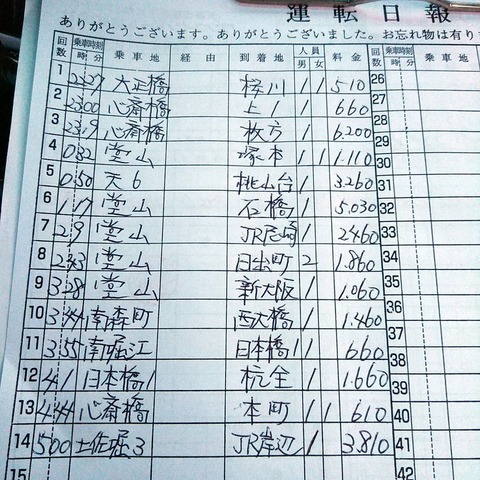 運転日報
ありがとうございます。ありがとうございました。お忘れ物は有り
回数 乗車時刻 時 分 乗車地 経由 到着地 人員 男 女 料金 回数 乗車時刻 時 分 乗車地
1 22:27 大正橋 桜川 1 1 510 26
2 23:00 心斎橋 上1 1 660 27
3 23:19 心斎橋 枚方 1 6.200 28
4 0:32 堂山 塚本 1 1 1.110 29
5 0:50 天6 桃山台 1 3.260 30
6 1:17 堂山 石橋 1 5.030 31
7 2:9 堂山 JR尼崎 1 2460 32
8 2:43 堂山 日出町 2 1.860 33
9 3:28 堂山 新大阪 1 1.060 34
10 3:44 南森町 西大橋 1 1.460 35
11 3:55 南堀江 日本橋1 1 660 36
12 4:1 日本橋1 杭全 1 1.660 37
13 4:44 心斎橋 本町 1 1 610 38
14 5:00 土佐堀3 JR岸辺 1 3.810 39
15 40
41
42